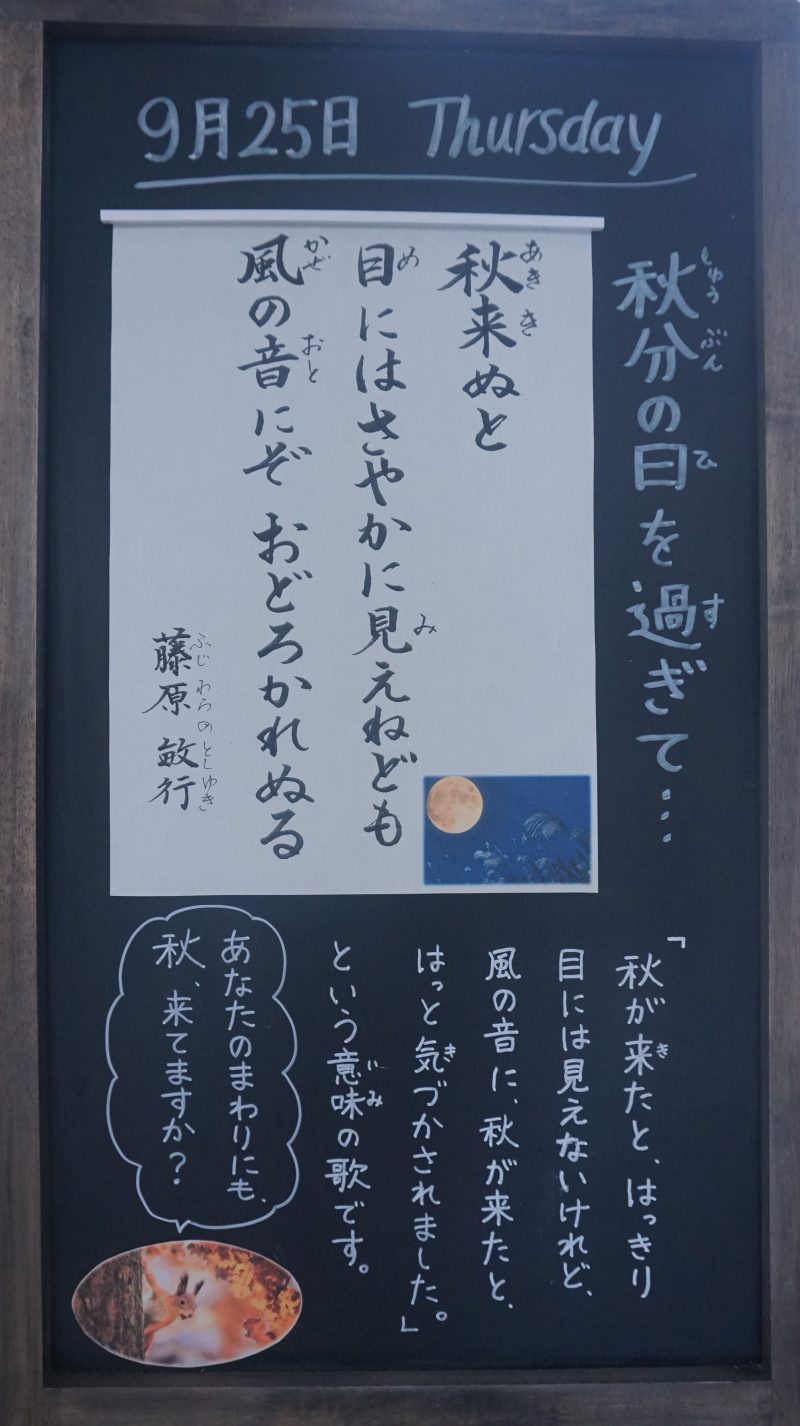 9月25日 Thursday
秋分の日を過ぎて…
しゅう ぶん ひ す
秋来ぬと
あき き
目にはさやかに見えねども
め み
風の音にぞ おどろかれぬる
かぜ おと
藤原 敏行
ふじ わら の としゆき
「秋が来たと、はっきり
き
目には見えないけれど、
風の音に、秋が来たと、
はっと気づかされました。」
き
という意味の歌です。
いみ
あなたのまわりにも、
秋、来てますか?